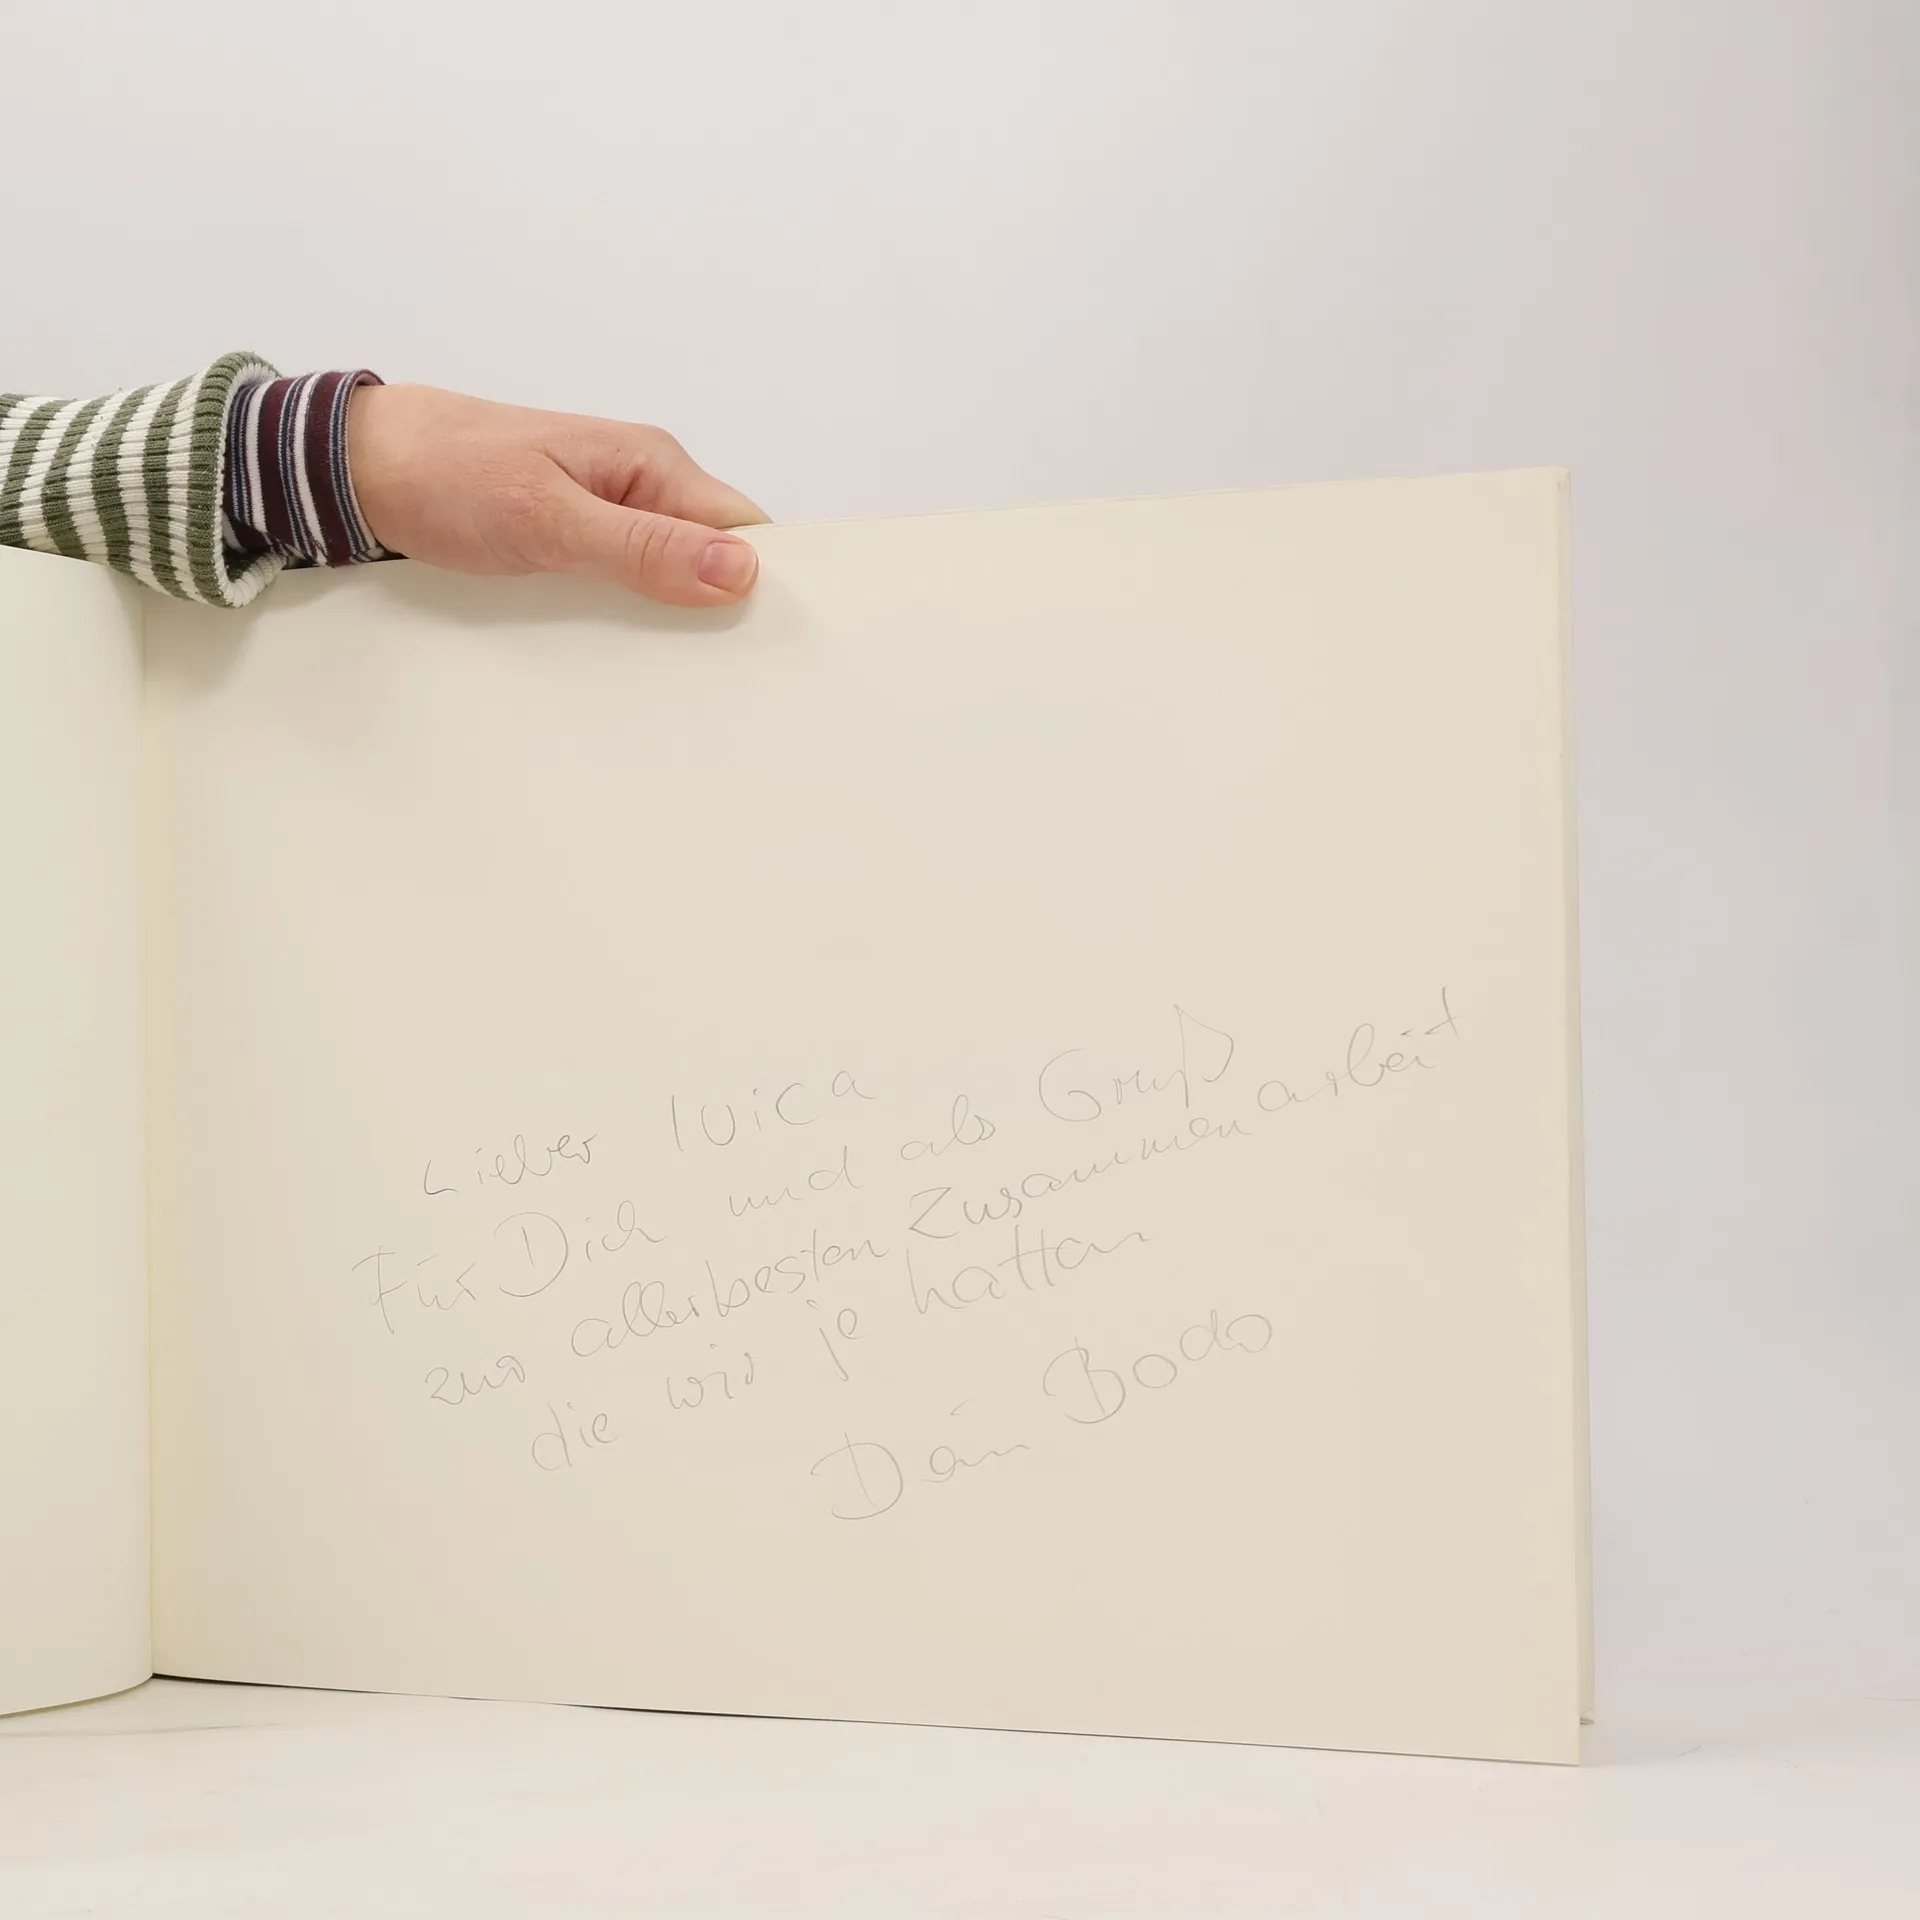 Lieber IVICA
Für Dich und als Gruß
zur allerbesten Zusammenarbeit
die wir je hatten
Dein Bodo